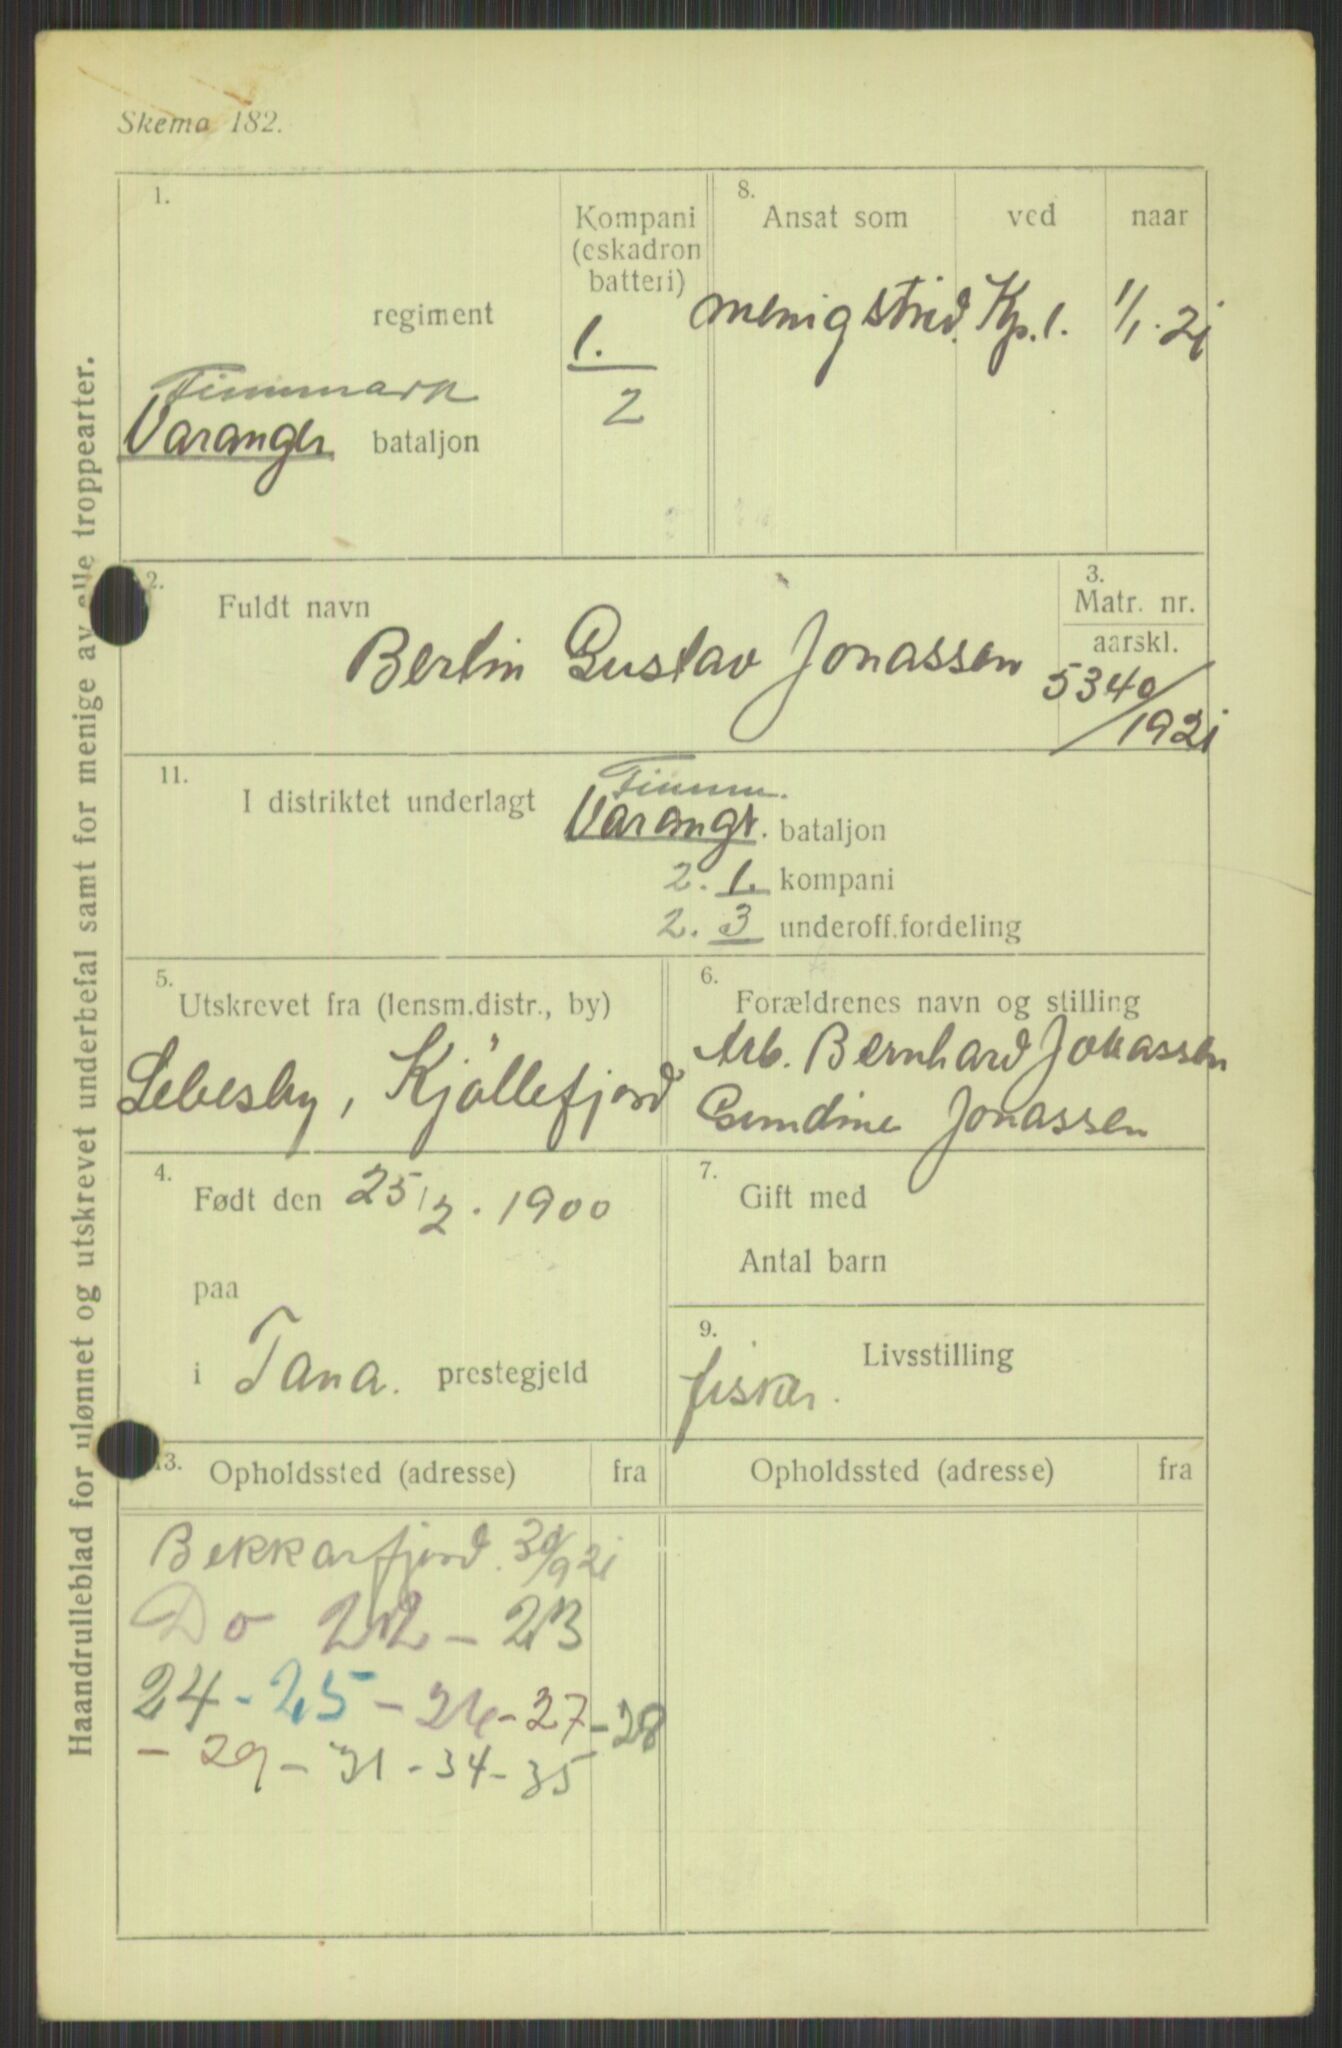 Skema 182.
Haandrulleblad for ulønnet og utskrevet underbefal samt for menige av alle troppearter.
1.
regiment
Finnmark
Varanger bataljon
Kompani
(eskadron
batteri)
1.
2
8.
Ansat som ved naar
menig strid. Kp. 1. 1/1. 21
2.
Fuldt navn
Bertin Gustav Jonassen
3.
Matr. nr.
aarskl.
5340/
1921
11.
Finnm.
I distriktet underlagt Varangr. bataljon
2. 1. kompani
2. 3 underoff.fordeling
5.
Utskrevet fra (lensm.distr., by)
Lebesby, Kjöllefjord
6.
Forældrenes navn og stilling
Arb. Bernhard Jonassen
Gundine Jonassen
4.
Født den 25/2. 1900
paa
i Tana. prestegjeld
7.
Gift med
Antal barn
9.
Livsstilling
fisker.
13.
Opholdssted (adresse) fra Opholdssted (adresse) fra
Bekkarfjord. 30/9 21
Do 22 - 23
24 - 25 - 26 - 27 - 28
- 29 - 31 - 34 - 35